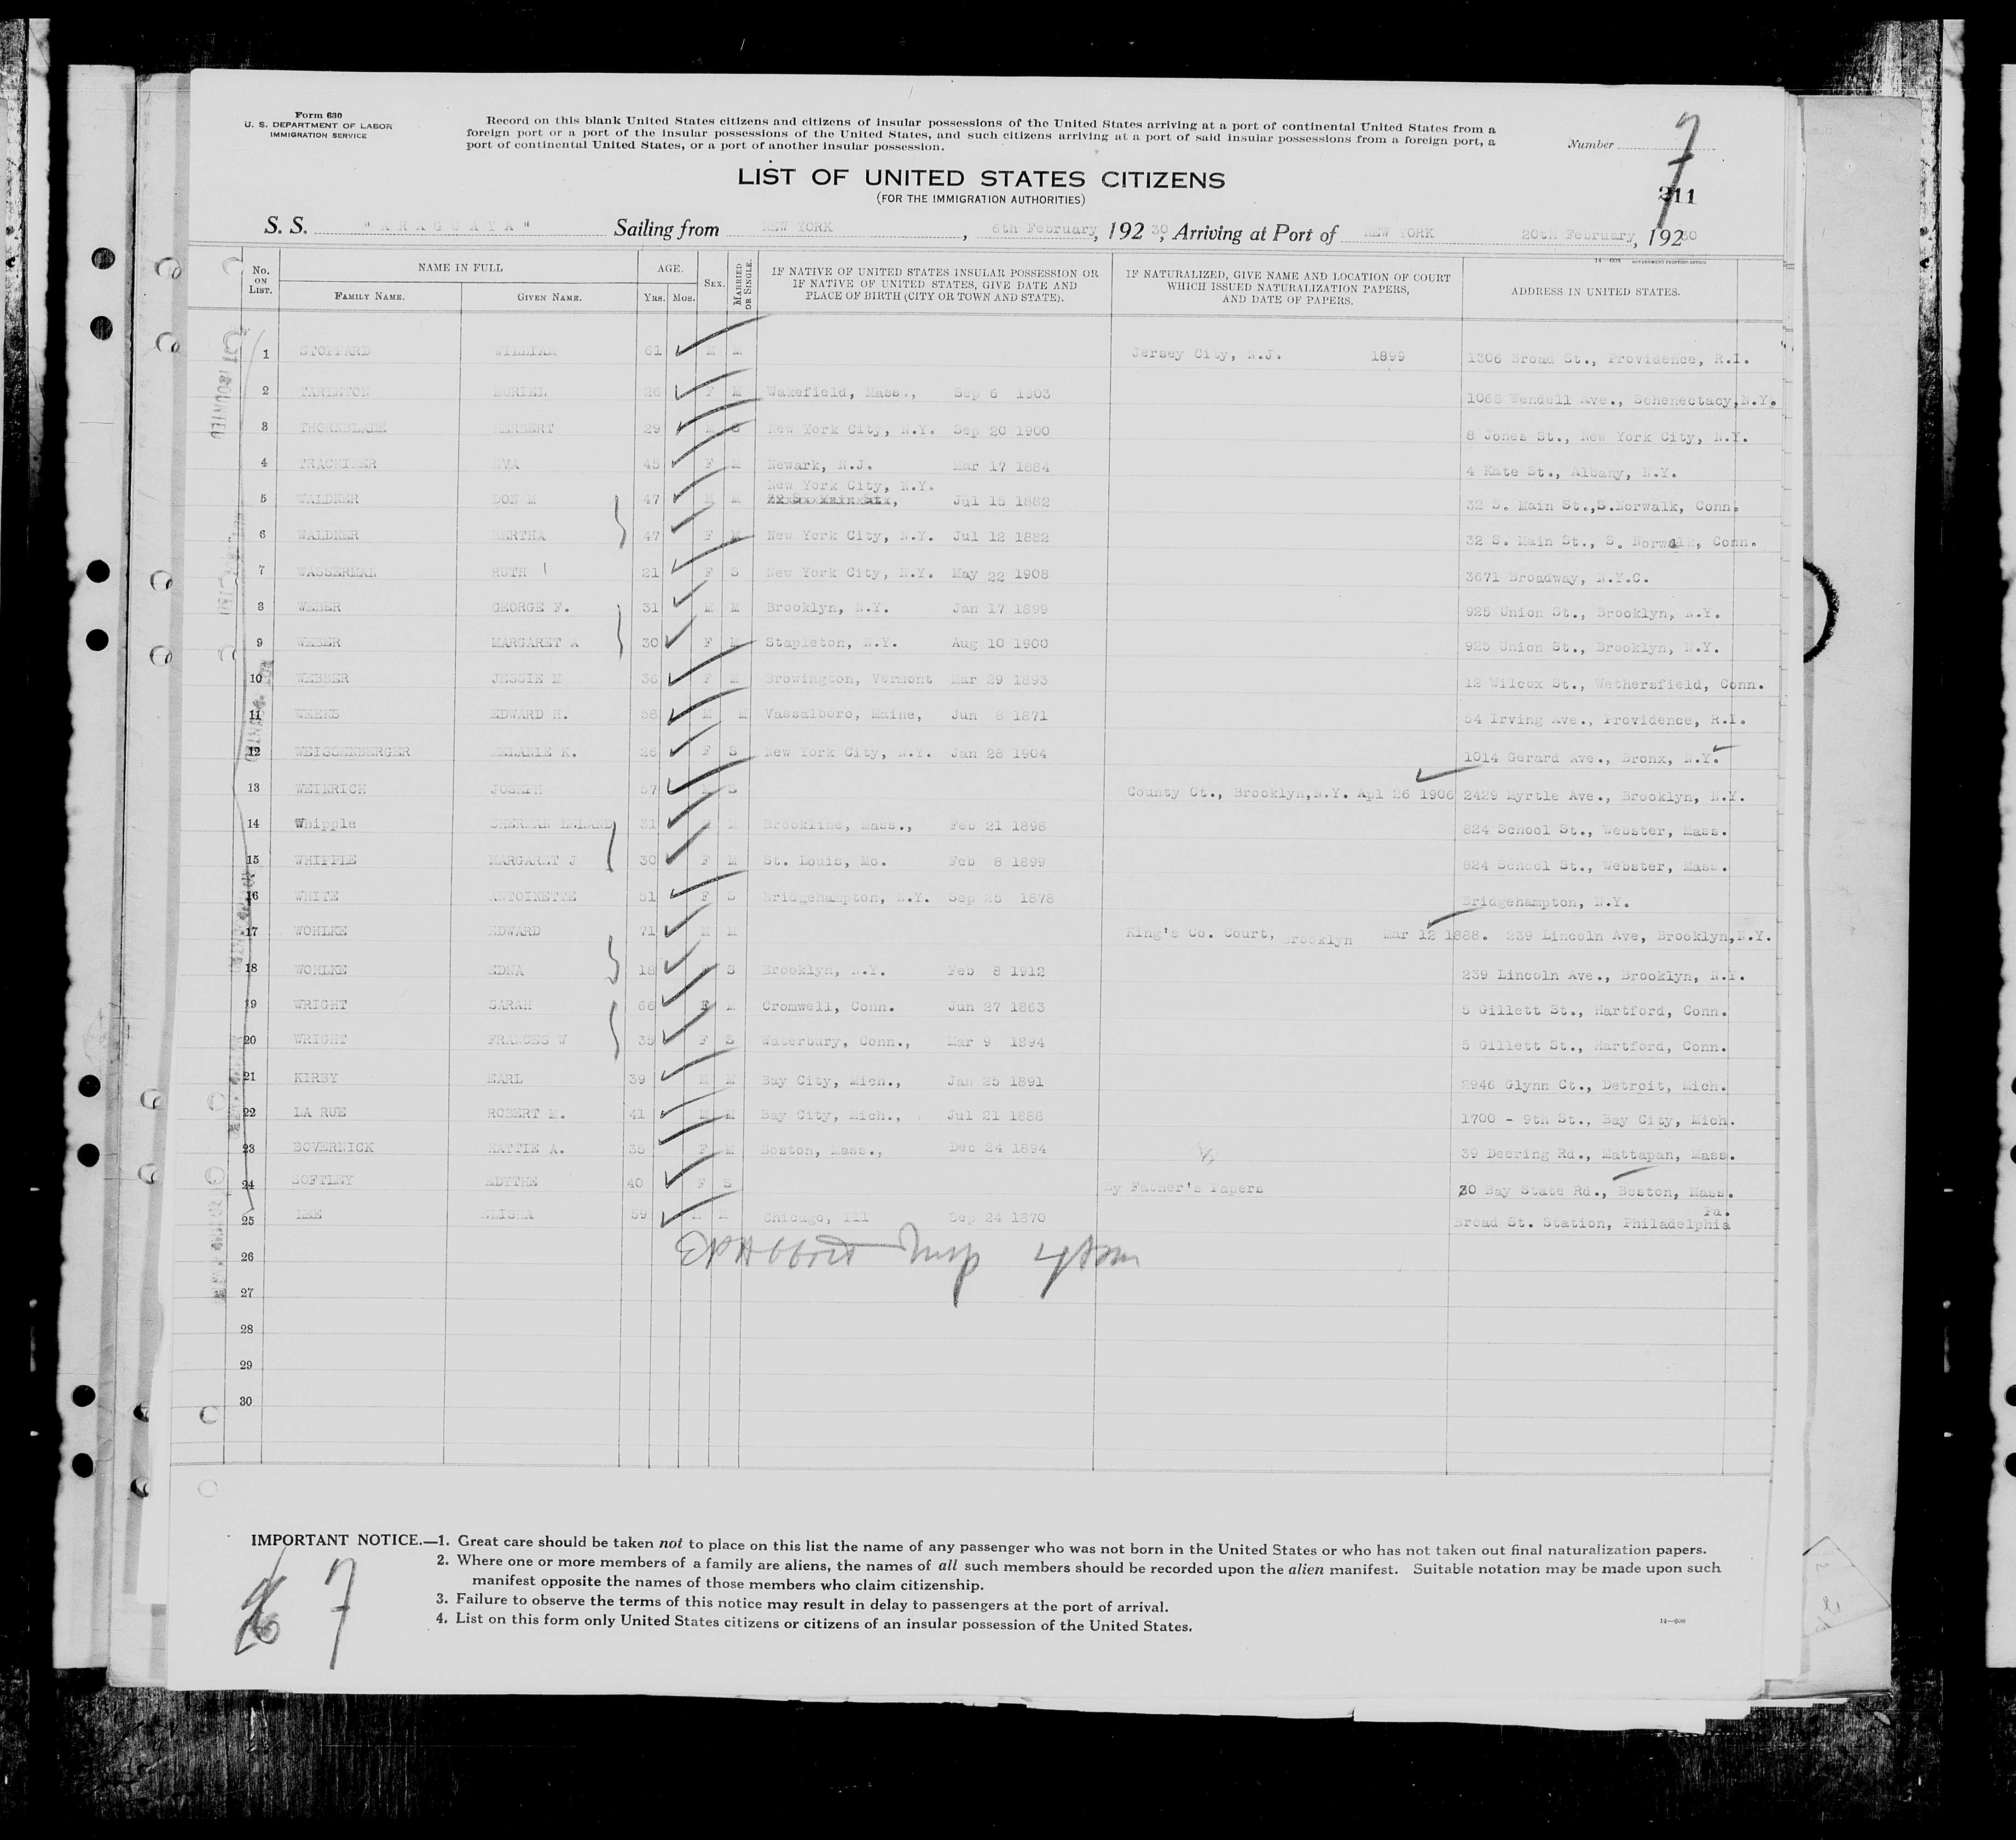 Form 630
U. S. DEPARTMENT OF LABOR
IMMIGRATION SERVICE
Record on this blank United States citizens and citizens of insular possessions of the United States arriving at a port of continental United States from a
foreign port or a port of the insular possessions of the United States, and such citizens arriving at a port of said insular possessions from a foreign port, a
port of continental United States, or a port of another insular possession.
Number 7
LIST OF UNITED STATES CITIZENS
(FOR THE IMMIGRATION AUTHORITIES)
211
S. S. "ARAGUAYA" Sailing from NEW YORK, 6th February, 192 30, Arriving at Port of NEW YORK 20th February, 192 30
14—608 GOVERNMENT PRINTING OFFICE
No. ON LIST. NAME IN FULL FAMILY NAME. GIVEN NAME. AGE. YRS. MOS. SEX. MARRIED OR SINGLE. IF NATIVE OF UNITED STATES INSULAR POSSESSION OR IF NATIVE OF UNITED STATES, GIVE DATE AND PLACE OF BIRTH (CITY OR TOWN AND STATE). IF NATURALIZED, GIVE NAME AND LOCATION OF COURT WHICH ISSUED NATURALIZATION PAPERS, AND DATE OF PAPERS. ADDRESS IN UNITED STATES.
1 STOPPARD WILLIAM 61 M M Jersey City, N.J. 1899 1306 Broad St., Providence, R.I.
2 TARLETON MURIEL 26 F M Wakefield, Mass., Sep 6 1903 1068 Wendell Ave., Schenectacy, N.Y.
3 HERBERT 29 M S New York City, N.Y. Sep 20 1900 8 Jones St., New York City, N.Y.
4 EVA 45 F M Newark, N.J. Mar 17 1884 4 Kate St., Albany, N.Y.
New York City, N.Y.
5 WALDNER DON M 47 M M Jul 15 1882 32 S. Main St.,S.Norwalk, Conn.
6 WALDNER BERTHA 47 F M New York City, N.Y. Jul 12 1882 32 S. Main St., S. Norwalk, Conn.
7 WASSERMAN RUTH 21 F S New York City, N.Y. May 22 1908 3671 Broadway, N.Y.C.
8 WEBER GEORGE F. 31 M M Brooklyn, N.Y. Jan 17 1899 925 Union St., Brooklyn, N.Y.
9 WEBER MARGARET A 30 F M Stapleton, N.Y. Aug 10 1900 925 Union St., Brooklyn, N.Y.
10 WEBBER JESSIE M 36 F M Browington, Vermont Mar 29 1893 12 Wilcox St., Wethersfield, Conn.
11 WEEKS EDWARD H. 58 M M Vassalboro, Maine, Jun 8 1871 54 Irving Ave., Providence, R.I.
12 WEISSENBERGER MELANIE K. 26 F S New York City, N.Y. Jan 28 1904 1014 Gerard Ave., Bronx, N.Y.
13 WEINRICH JOSEPH 57 M S County Ct., Brooklyn,N.Y. Apl 26 1906 2429 Myrtle Ave., Brooklyn, N.Y.
14 Whipple SHERMAN LELAND 31 M M Brookline, Mass., Feb 21 1898 824 School St., Webster, Mass.
15 WHIPPLE MARGARET J 30 F M St. Louis, Mo. Feb 8 1899 824 School St., Webster, Mass.
16 WHITE ANTOINETTE 51 F S Bridgehampton, N.Y. Sep 25 1878 Bridgehampton, N.Y.
17 WOHLKE EDWARD 71 M M King's Co. Court, Brooklyn Mar 12 1888. 239 Lincoln Ave, Brooklyn, N.Y.
18 WOHLKE EDNA 18 F S Brooklyn, N.Y. Feb 8 1912 239 Lincoln Ave., Brooklyn, N.Y.
19 WRIGHT SARAH 66 F M Cromwell, Conn. Jun 27 1863 5 Gillett St., Hartford, Conn.
20 WRIGHT FRANCES W 35 F S Waterbury, Conn., Mar 9 1894 5 Gillett St., Hartford, Conn.
21 KIRBY EARL 39 M M Bay City, Mich., Jan 25 1891 2946 Glynn Ct., Detroit, Mich.
22 LA RUE ROBERT M. 41 M M Bay City, Mich., Jul 21 1888 1700 - 9th St., Bay City, Mich.
23 BOVERNICK HATTIE A. 35 F M Boston, Mass., Dec 24 1894 39 Deering Rd., Mattapan, Mass.
24 SOFTLEY EDYTHE 40 F S By Father's Papers 30 Bay State Rd., Boston, Mass.
Pa.
25 LEE ELISHA 59 M M Chicago, Ill Sep 24 1870 Broad St. Station, Philadelphia
26 Insp
27
28
29
30
IMPORTANT NOTICE.—1. Great care should be taken not to place on this list the name of any passenger who was not born in the United States or who has not taken out final naturalization papers.
2. Where one or more members of a family are aliens, the names of all such members should be recorded upon the alien manifest. Suitable notation may be made upon such
manifest opposite the names of those members who claim citizenship.
3. Failure to observe the terms of this notice may result in delay to passengers at the port of arrival.
4. List on this form only United States citizens or citizens of an insular possession of the United States.
14—608
7